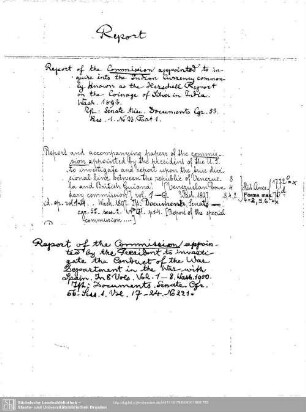 Report
Report of the Commission appointed to in-
quire into the Indian Currency common-
ly known as the Herschell Report
on the Coinage of Silver in India.
Wash. 1893.
Senate Misc. Documents Cgr. 53.
Sess. 1. N. 23. Part 1.
Report and accompanying papers of the commis-
sion appointed by the President of the U.S.
to investigate and report upon the true divi-
sional line between the republic of Venezue-
la and British Guiana. [Venezuelan boun-
dary commission] vol. 1
Wash. 1897. Documents, Senate
[Report of the special
commission]
Report of the Commission appoin-
ted by the President to investi-
gate the Conduct of the War
Department in the War with
Spain. In 8 Vols. Vol. 1-8. Wash. 1900.
Documents. Senate. Cgr.
56. Sess. 1. Vol. 17-24. No 221.